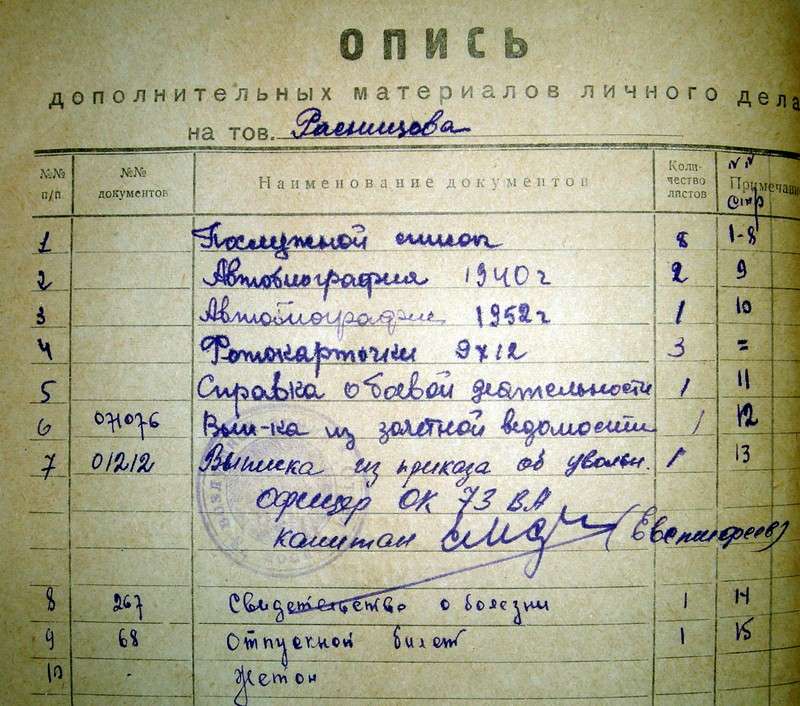 ОПИСЬ
дополнительных материалов личного дела
на тов. Расницова
№№ п/п №№ документов Наименование документов Количество листов №№ стр Примечание
1 Послужной список 8 1-8
2 Автобиография 1940 г 2 9
3 Автобиография 1952 г 1 10
4 Фотокарточки 9х12 3 =
5 Справка о боевой деятельности 1 11
6 071076 Вып-ка из зачетной ведомости 1 12
7 01212 Выписка из приказа об увольн. 1 13
Офицер ОК 73 ВА
капитан
8 267 Свидетельство о болезни 1 14
9 68 Отпускной билет 1 15
10 - Жетон